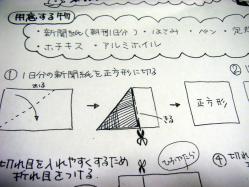 用意する物
・新聞紙(朝刊1日分)・はさみ・ペン・定
ホチキス・アルミホイル
① 1日分の新聞紙を正方形に切る
②
おる
きる
正方形
切れ目を入れやすくするため
折れ目をつける。
④ 切れ